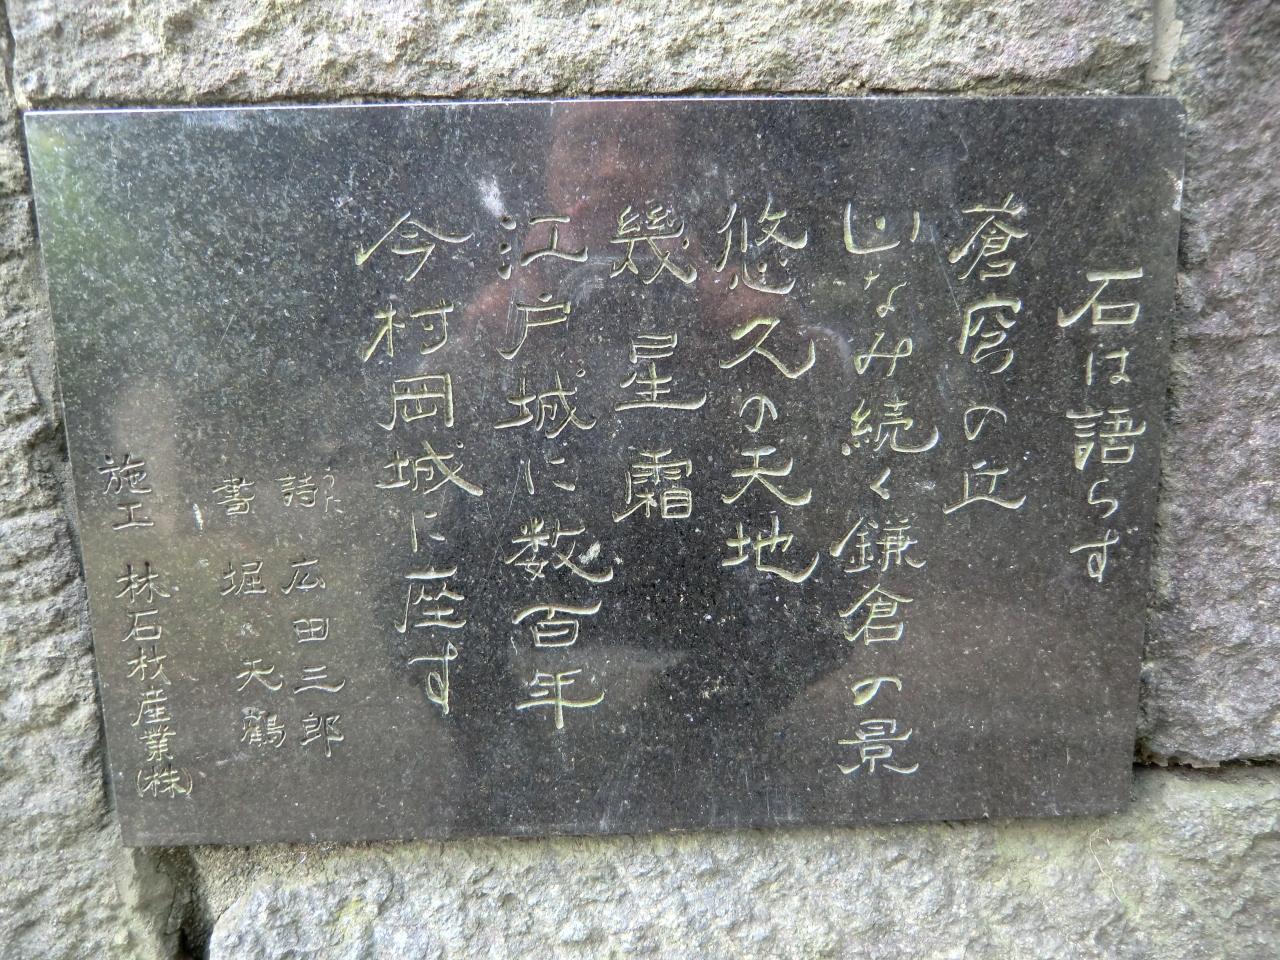 石は語らず
蒼穹の丘
山なみ続く鎌倉の景
悠久の天地
幾星霜
江戸城に数百年
今村岡城に座す
詩 広田三郎
うた
書 堀 天鶴
施工 林石材産業(株)